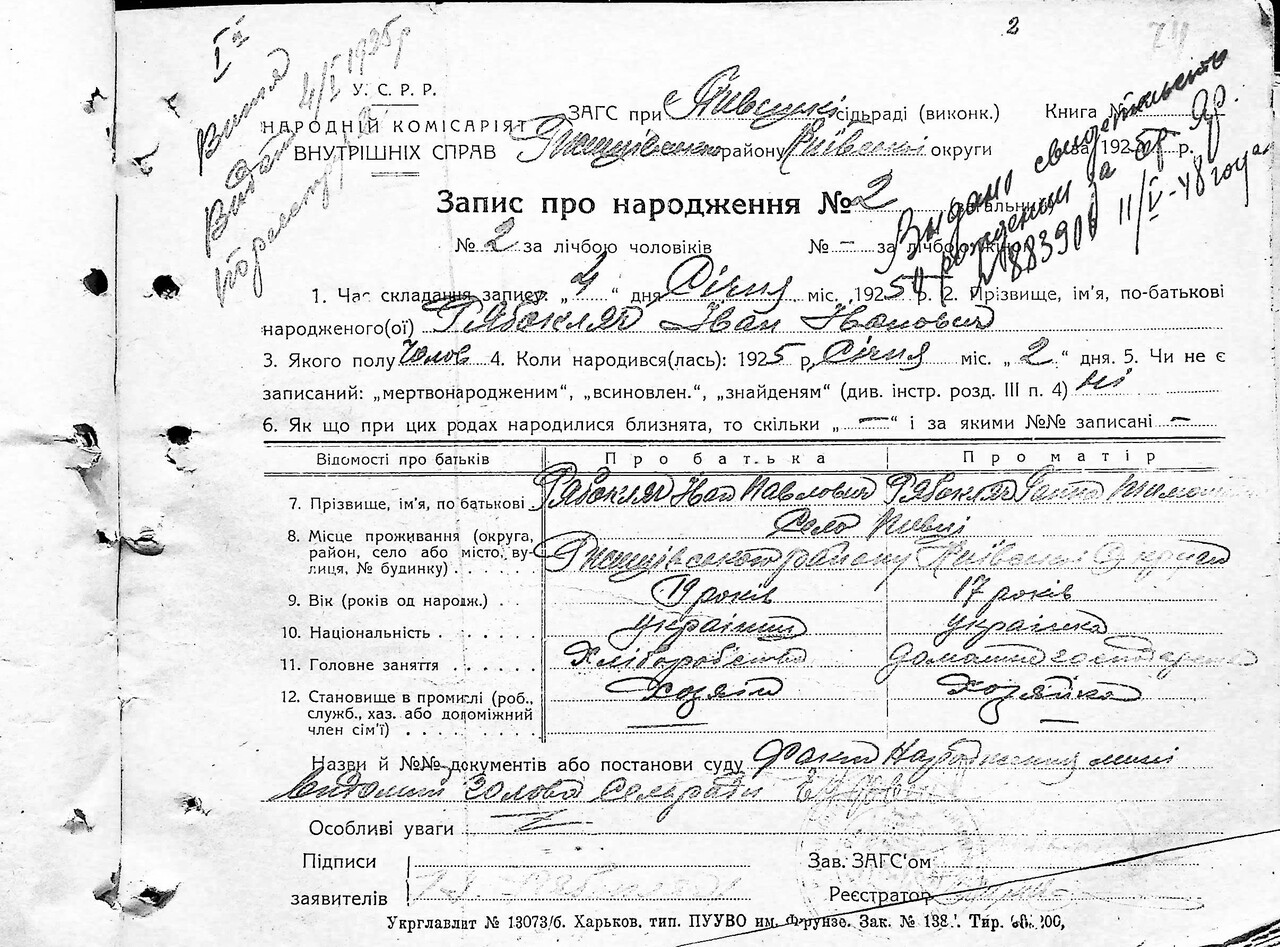 2
I
Витяг
Видано 4/I 1925р
У. С. Р. Р.
НАРОДНІЙ КОМІСАРІЯТ
ВНУТРІШНІХ СПРАВ
ЗАГС при Півецькій сільраді (виконк.) Книга №
Ржищівського району Київської округи за 192 р.
Запис про народження № 2 загальний
№ 2 за лічбою чоловіків № – за лічбою
Выдано свидетельство
о рождении за
№ 883906 11/V-48 года
1. Час складання запису: „ 4 “ дня Січня міс. 1925 р. 2. Прізвище, ім'я, по-батькові
народженого(ої) Рябокляч Іван Іванович
3. Якого полу Чолов 4. Коли народився(лась): 1925 р, Січня міс. „ 2 “ дня. 5. Чи не є
записаний: „мертвонародженим“, „всиновлен.“, „знайденям“ (див. інстр. розд. III п. 4) ні
6. Як що при цих родах народилися близнята, то скільки „ — “ і за якими №№ записані –
Відомості про батьків Про батька Про матір
7. Прізвище, ім'я, по батькові Рябокляч Іван Павлович Рябокляч Ганна
8. Місце проживання (округа, район, село або місто, вулиця, № будинку) Село Півці
Ржищівського району Київської Округи
9. Вік (років од народж.) 19 років 17 років
10. Національність українець українка
11. Головне заняття Хліборобство домашнє господарство
12. Становище в промислі (роб., служб., хаз. або допоміжний член сім'ї) Хозяїн Хозяйка
Назви й №№ документів або постанови суду Факт Народження мені
відомий Голова Сельради
Особливі уваги
Підписи
заявителів
Зав. ЗАГС'ом
Реєстратор
Укрглавлит № 13073/б. Харьков. тип. ПУУВО им. Фрунзе. Зак. № 138 Тир.